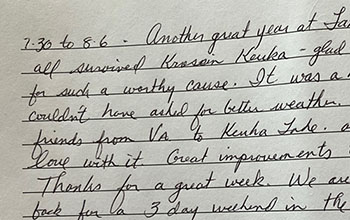 7-30 to 8-6 - Another great year at
all survived Krossin Keuka - glad
for such a worthy cause. It was a
couldn't have asked for better weather.
friends from VA to Keuka Lake.
love with it Great improvements
Thanks for a great week. We are
back for a 3 day weekend in the